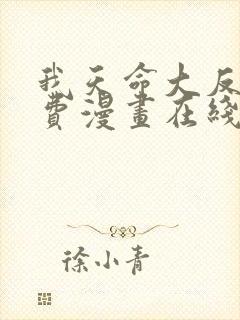 我天命大反
费漫畫在綫
徐小青